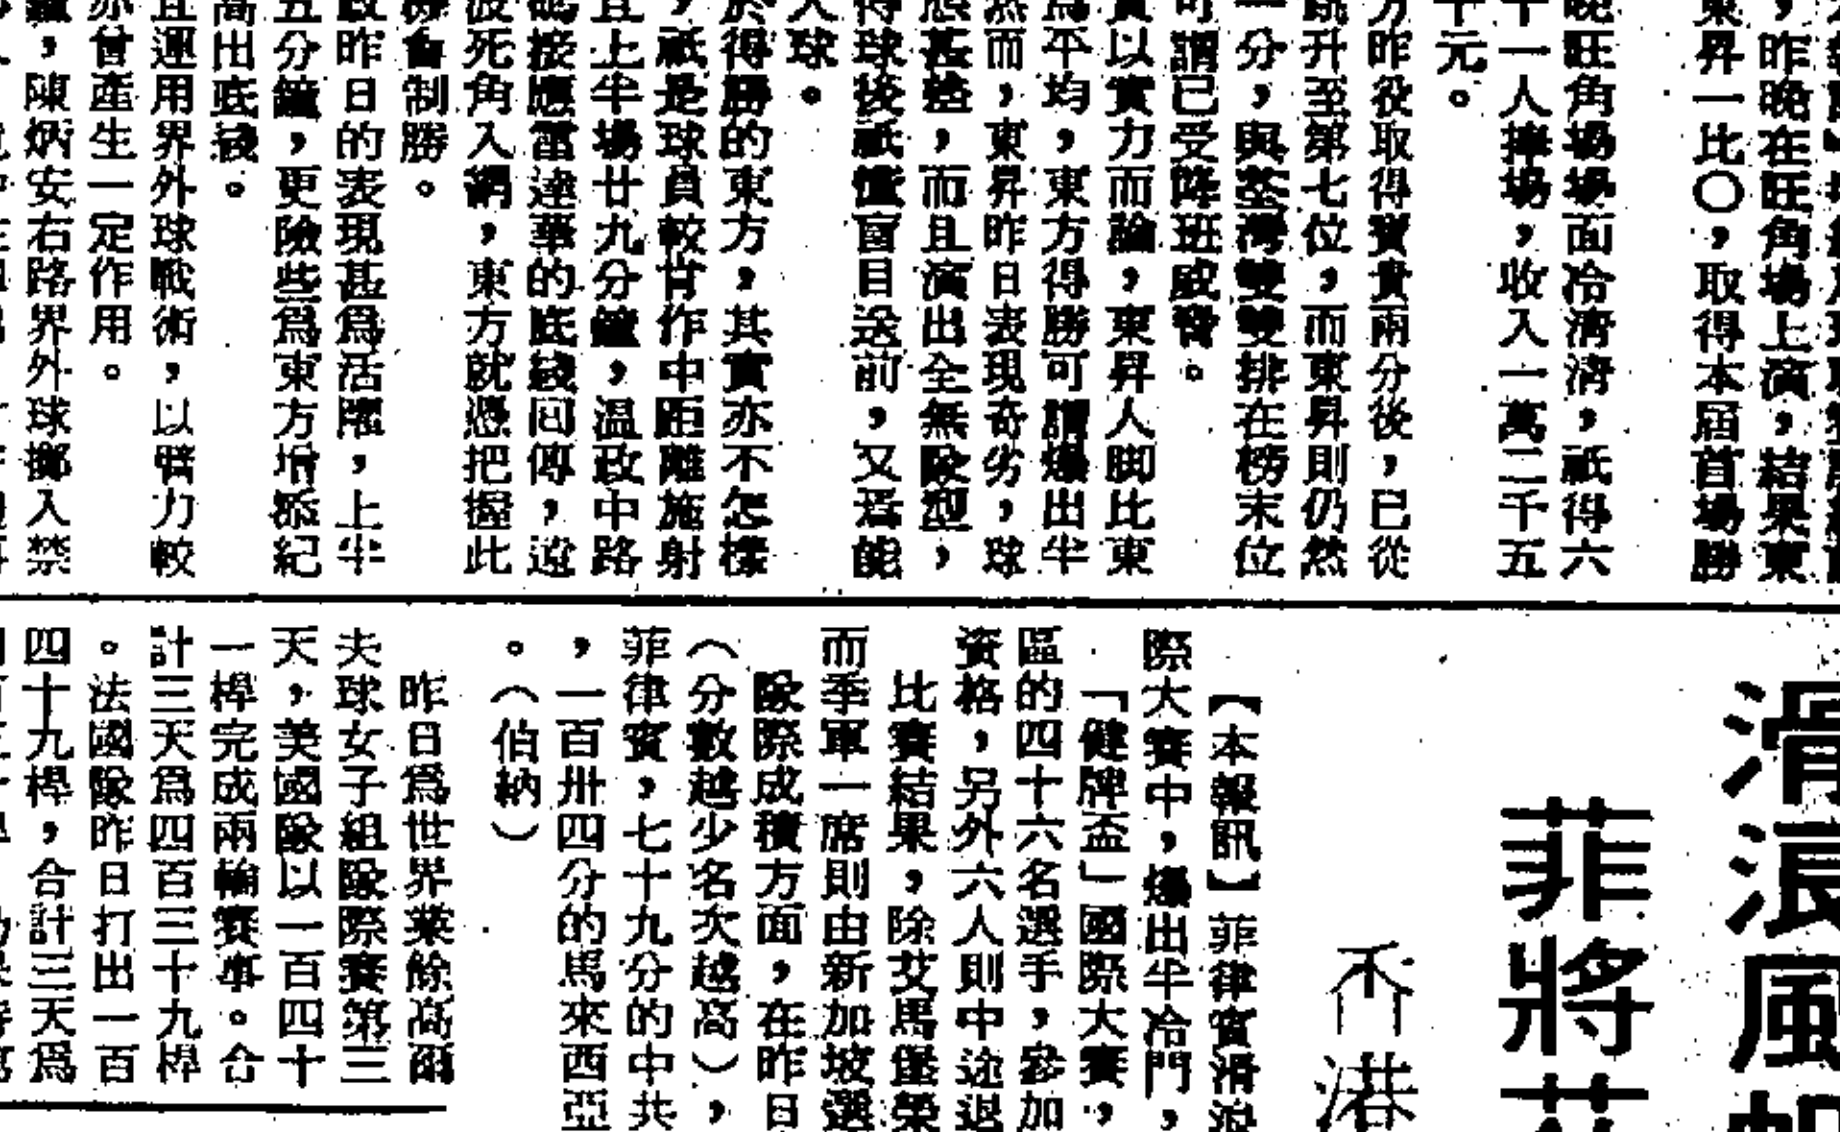 ，昨晚在旺角場上演，結果東
東昇一比〇，取得本屆首場勝
晚旺角場場面冷清清，祇得六
十一人捧場，收入一萬二千五
十元。
方昨役取得寶貴兩分後，已從
跳升至第七位，而東昇則仍然
一分，與荃灣雙雙排在榜末位
可謂已受降班威脅。
實以實力而論，東昇人脚比東
爲平均，東方得勝可謂爆出半
然而，東昇昨日表現奇劣，球
態甚差，而且演出全無隊型，
得球後祇懂盲目送前，又焉能
入球。
於得勝的東方，其實亦不怎樣
，祇是球員較肯作中距離施射
且上半場廿九分鐘，温政中路
碼接應雷達華的底綫回傳，遠
波死角入網，東方就憑把握此
機會制勝。
政昨日的表現甚爲活躍，上半
五分鐘，更險些爲東方增添紀
高出底綫。
且運用界外球戰術，以臂力較
亦曾產生一定作用。
，陳炳安右路界外球擲入禁
滑浪風帆
菲將
香港
【本報訊】菲律賓滑浪
際大賽中，爆出半冷門，
「健牌盃」國際大賽，
區的四十六名選手，參加
資格，另外六人則中途退
比賽結果，除艾馬堡榮
而季軍一席則由新加坡選
隊際成積方面，在昨日
（分數越少名次越高），
菲律賓，七十九分的中共
，一百卅四分的馬來西亞
。（伯納）
昨日爲世界業餘高爾
夫球女子組隊際賽第三
天，美國隊以一百四十
一桿完成兩輪賽事。合
計三天爲四百三十九桿
。法國隊昨日打出一百
四十九桿，合計三天爲